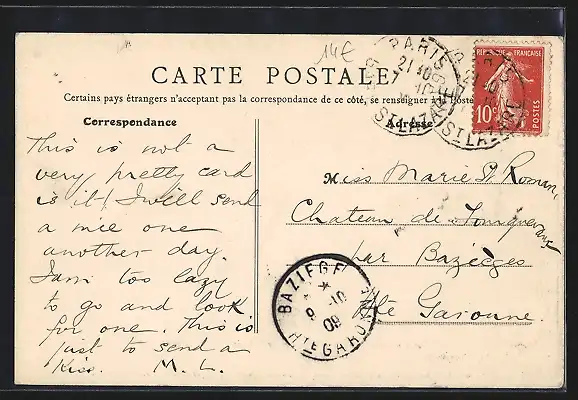 14€
CARTE POSTALE
Certains pays étrangers n'acceptant pas la correspondance de ce côté, se renseigner à la Poste
Correspondance
This is not a
very pretty card
is it! I will send
a nice one
another day.
I am too lazy
to go and look
for one. This is
just to send a
Kiss. M. L.
Adresse
Miss Marie St Roman,
Chateau de
par Bazièges
Hte Garonne.
PARIS
21 10
7 10
ST LAZARE
RÉPUBLIQUE FRANÇAISE
10c
POSTES
BAZIEGE
9 -10
09
HTE GARONNE